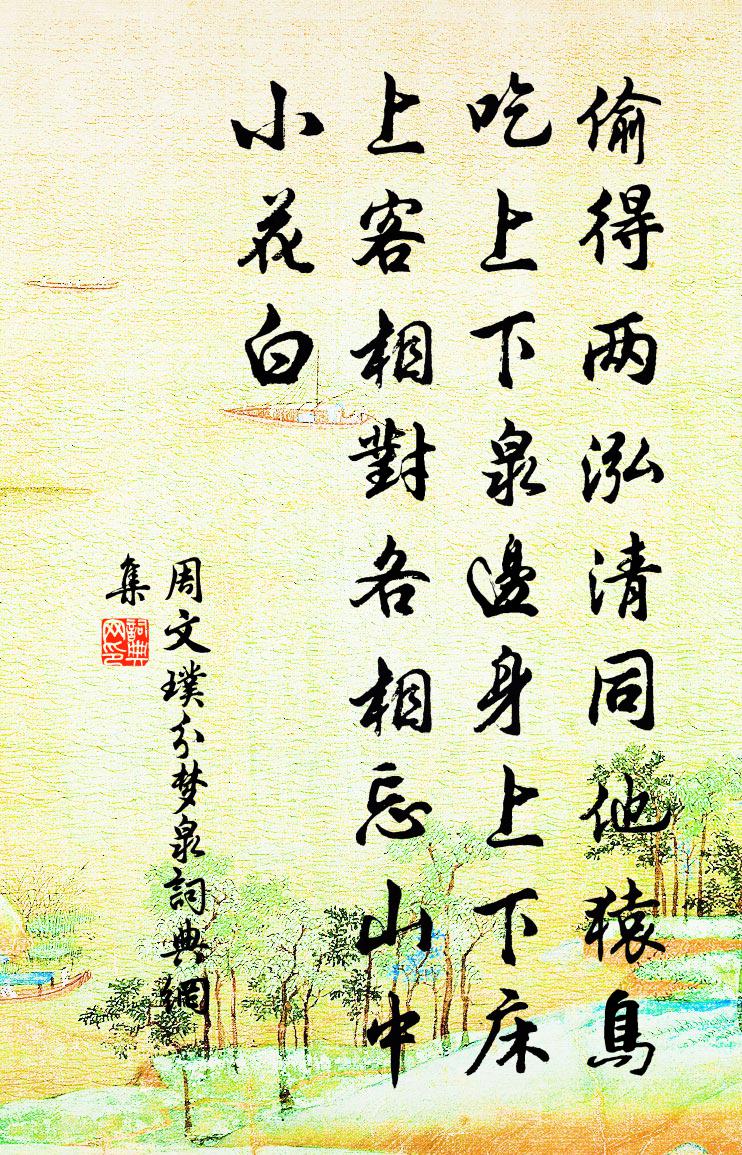 偷得两泓清同他猿鳥
吃上下泉邊身上下床
上客相對各相忘山中
小花白
周文璞分梦泉詞典網
集
詞典
网印